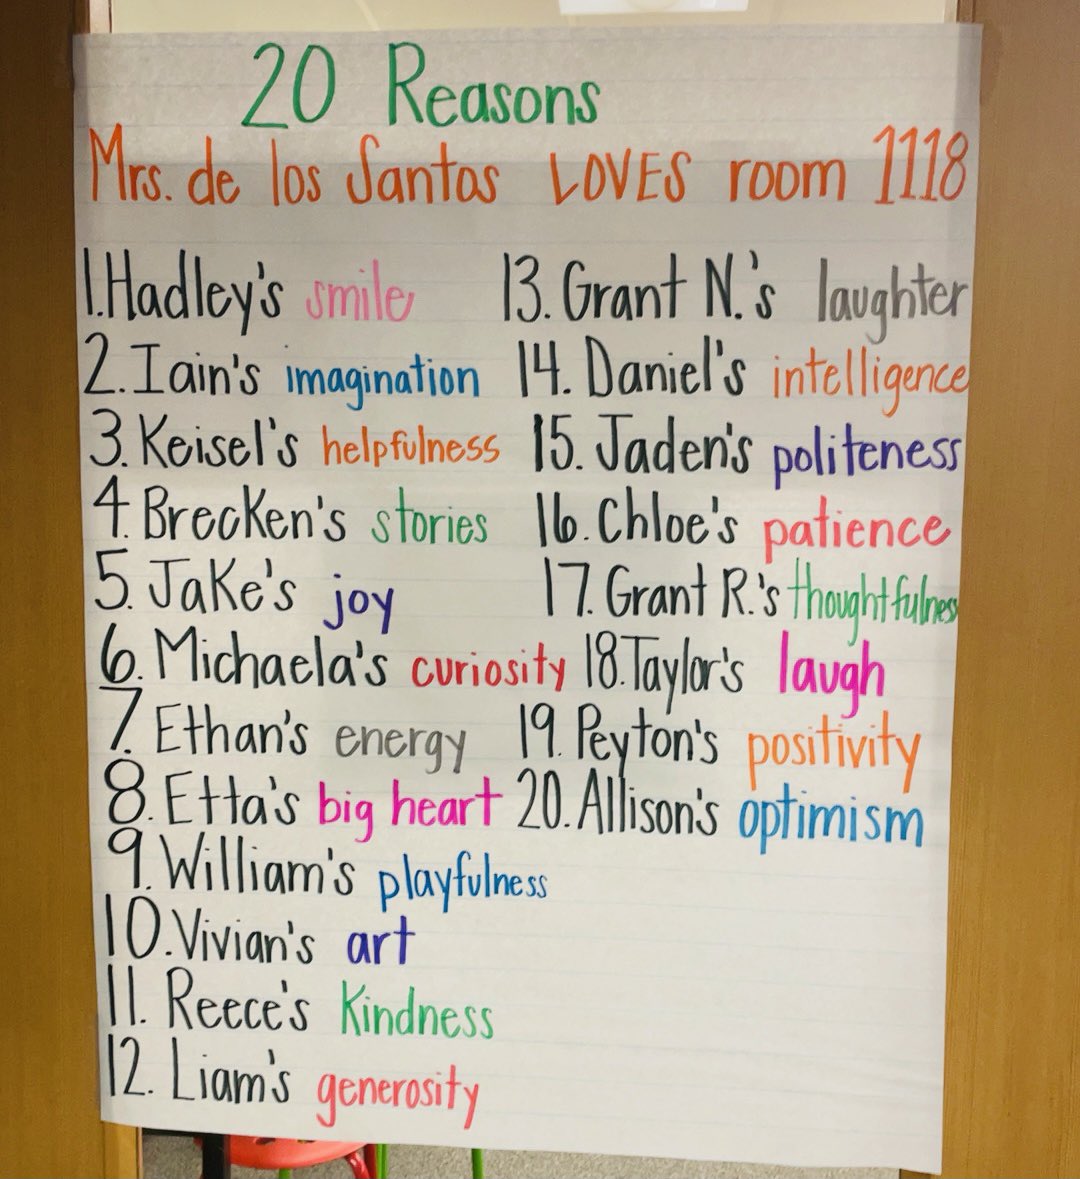 20 Reasons
Mrs. de los Santos LOVES room 1118
1. Hadley's smile
2. Iain's imagination
3. Keisel's helpfulness
4. Brecken's stories
5. Jake's joy
6. Michaela's curiosity
7. Ethan's energy
8. Etta's big heart
9. William's playfulness
10. Vivian's art
11. Reece's Kindness
12. Liam's generosity
13. Grant N.'s laughter
14. Daniel's intelligence
15. Jaden's politeness
16. Chloe's patience
17. Grant R.'s thoughtfulness
18. Taylor's laugh
19. Peyton's positivity
20. Allison's optimism